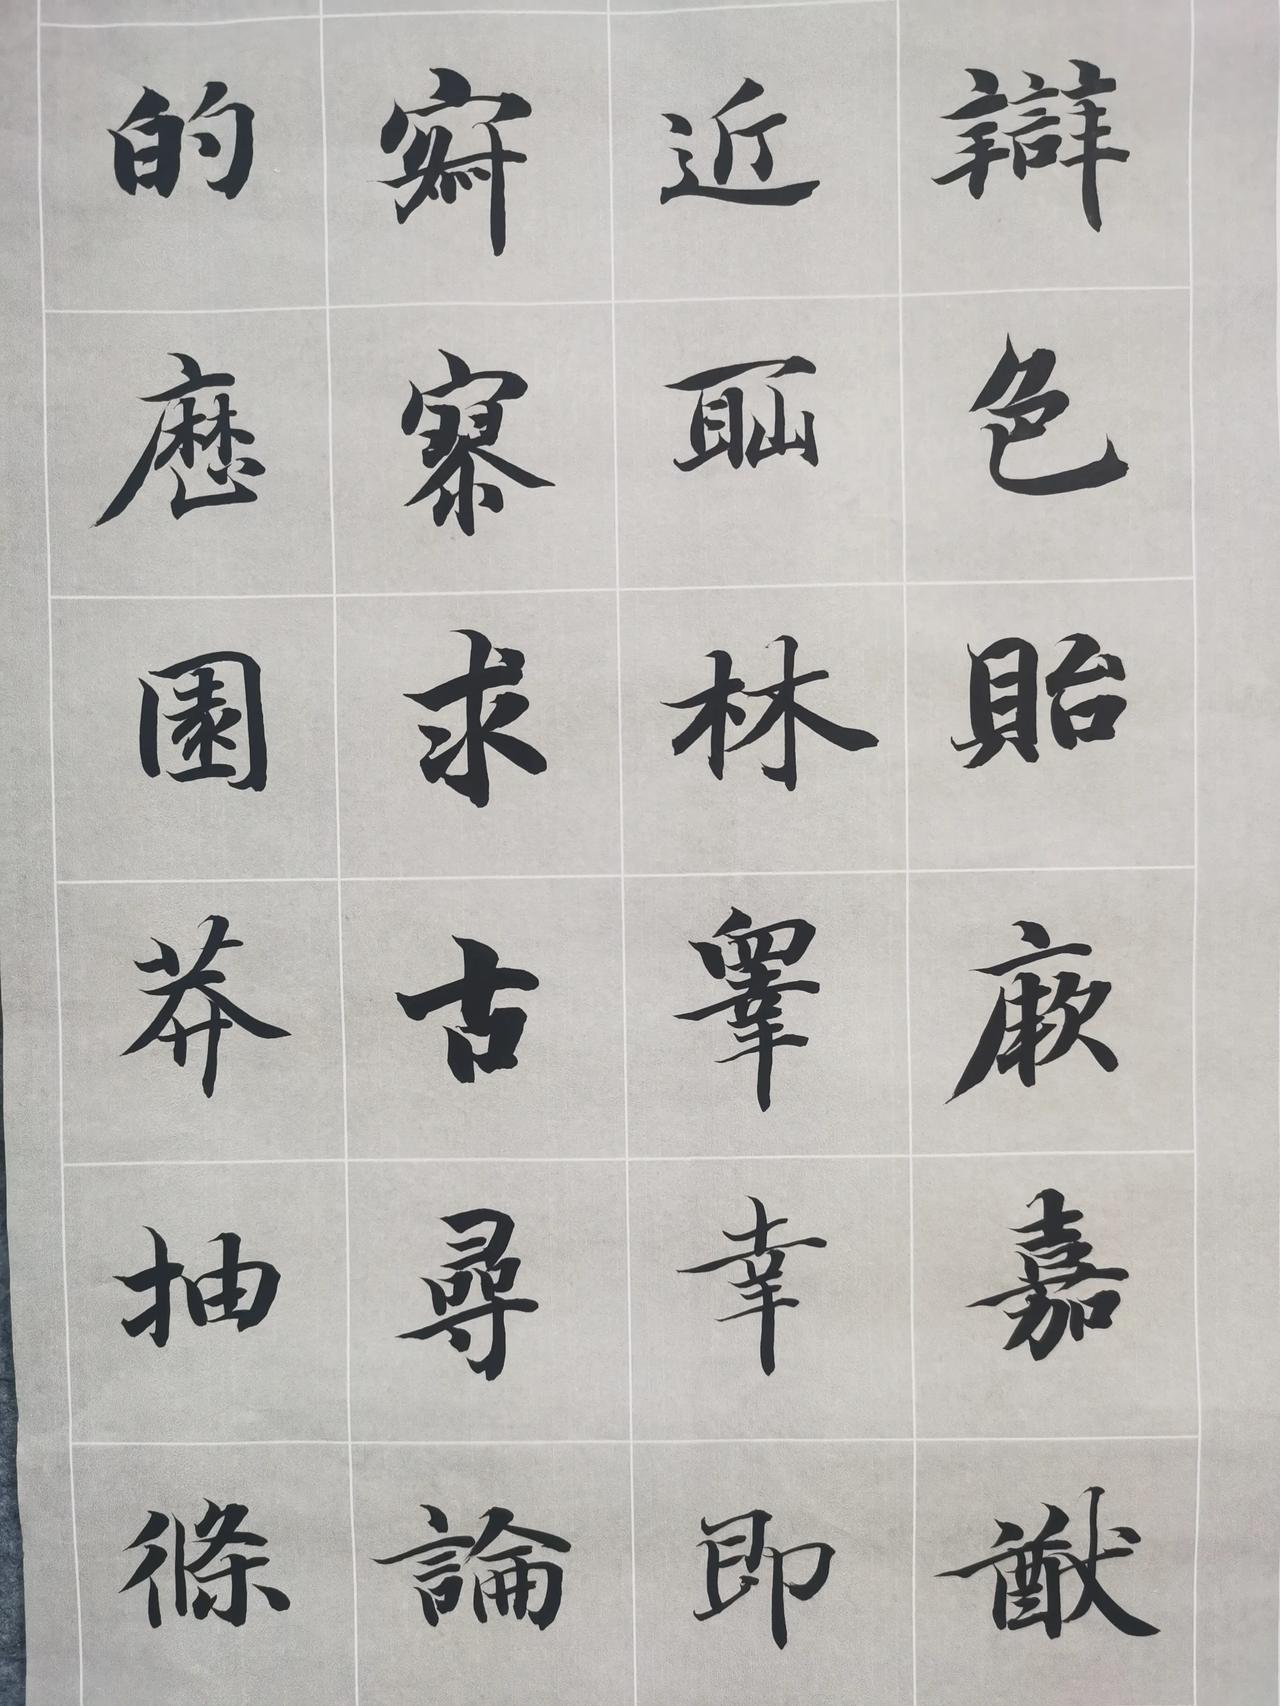 辯色貽厥嘉猷
近恥林睪幸即
寂寥求古尋論
的歷園莽抽條